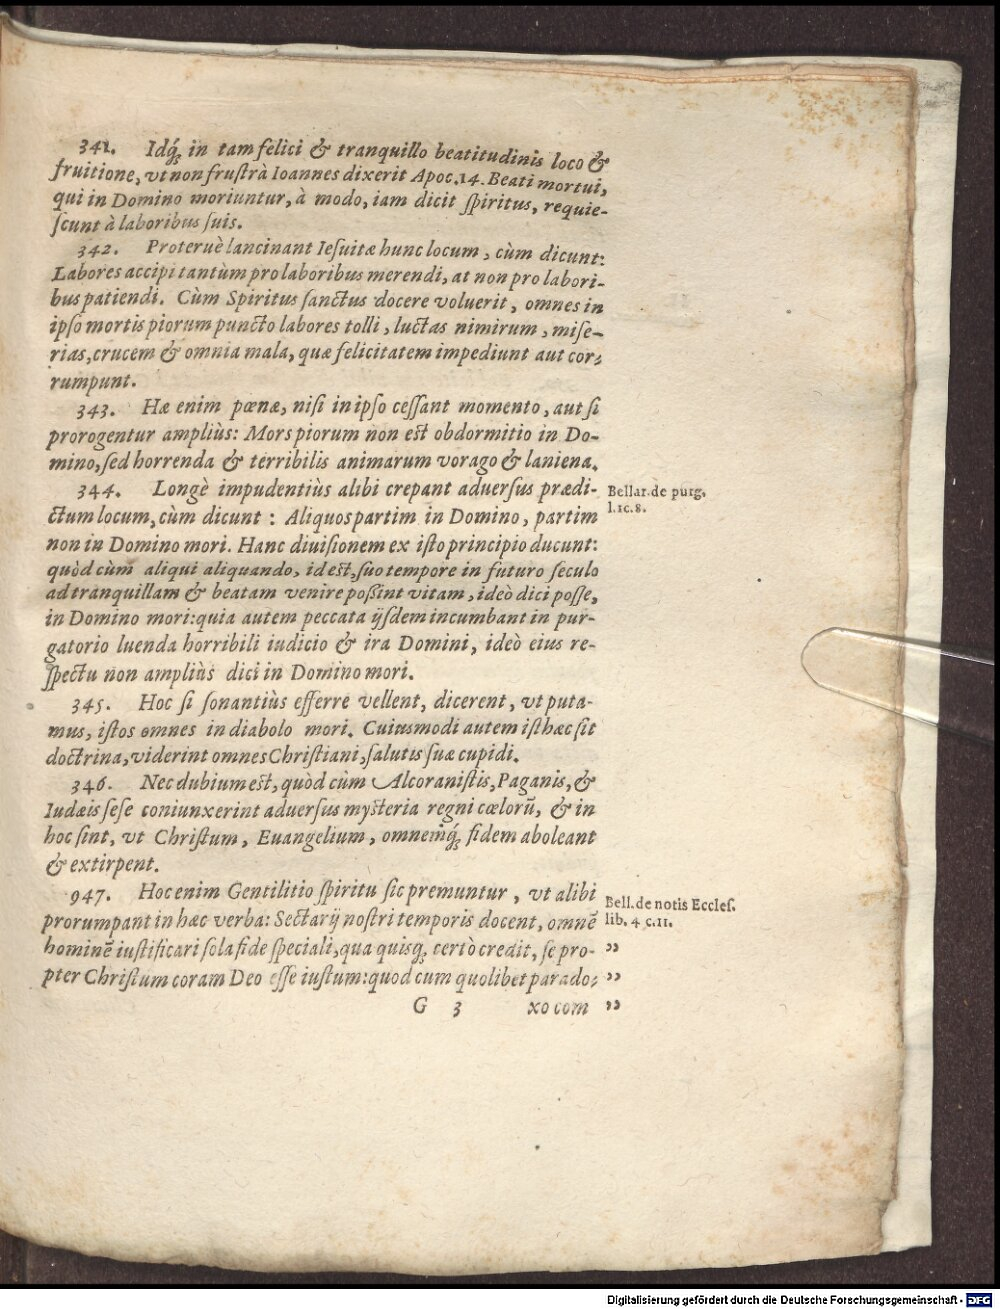 341. Idq́; in tam felici & tranquillo beatitudinis loco &
fruitione, vt non frustrà Ioannes dixerit Apoc. 14. Beati mortui,
qui in Domino moriuntur, à modo, iam dicit spiritus, requie-
scunt à laboribus suis.
342. Proteruè lancinant Iesuitæ hunc locum, cùm dicunt:
Labores accipi tantùm pro laboribus merendi, at non pro labori-
bus patiendi. Cùm Spiritus sanctus docere voluerit, omnes in
ipso mortis piorum puncto labores tolli, luctas nimirum, mise-
rias, crucem & omnia mala, quæ felicitatem impediunt aut cor-
rumpunt.
343. Hæ enim pœnæ, nisi in ipso cessant momento, aut si
prorogentur ampliùs: Mors piorum non est obdormitio in Do-
mino, sed horrenda & terribilis animarum vorago & laniena.
344. Longè impudentiùs alibi crepant aduersus prædi-
ctum locum, cùm dicunt: Aliquos partim in Domino, partim
non in Domino mori. Hanc diuisionem ex isto principio ducunt:
quòd cùm aliqui aliquando, id est, suo tempore in futuro seculo
ad tranquillam & beatam venire possint vitam, ideò dici posse,
in Domino mori: quia autem peccata ijsdem incumbant in pur-
gatorio luenda horribili iudicio & ira Domini, ideò eius re-
spectu non ampliùs dici in Domino mori.
Bellar. de purg.
l. 1c. 8.
345. Hoc si sonantiùs efferre vellent, dicerent, vt puta-
mus, istos omnes in diabolo mori. Cuiusmodi autem isthæc sit
doctrina, viderint omnes Christiani, salutis suæ cupidi.
346. Nec dubium est, quòd cùm Alcoranistis, Paganis, &
Iudæis sese coniunxerint aduersus mysteria regni cœlorū, & in
hoc sint, vt Christum, Euangelium, omnemq́; fidem aboleant
& extirpent.
947. Hoc enim Gentilitio spiritu sic premuntur, vt alibi
prorumpant in hæc verba: Sectarij nostri temporis docent, omnē
hominē iustificari sola fide speciali, qua quisq; certò credit, se pro-
pter Christum coram Deo esse iustum: quod cum quolibet parado-
Bell. de notis Eccles.
lib. 4 c. 11.
”
”
G 3 xo com ”
Digitalisierung gefördert durch die Deutsche Forschungsgemeinschaft - DFG